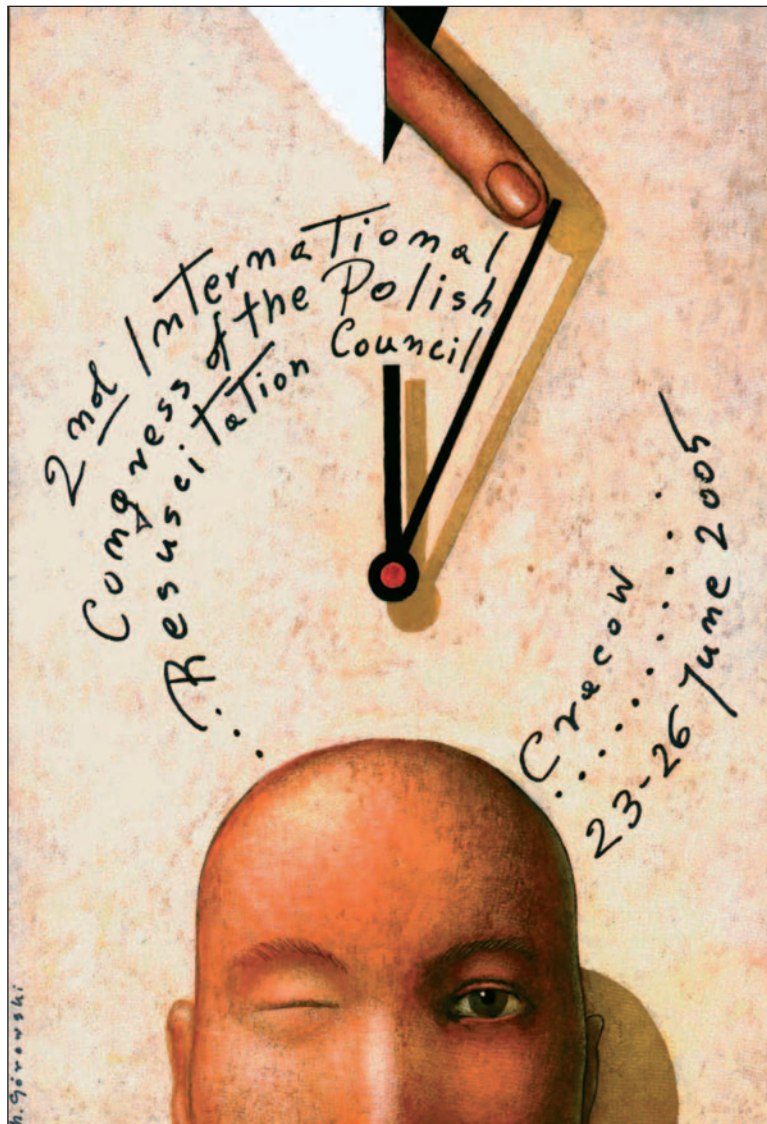 2nd International
Congress of the Polish
Resuscitation Council
Cracow
23-26 June 2005
h. Górowski